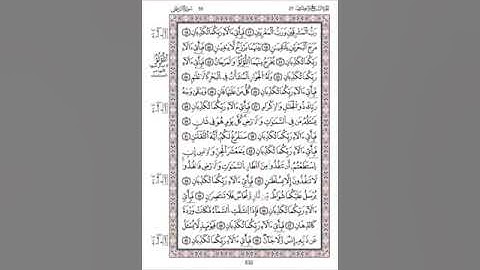 رَبُّ الْمَشْرِقَيْنِ وَرَبُّ الْمَغْرِبَيْنِ فَبِأَيِّ ءَالَاءِ رَبِّكُمَا تُكَذِّبَانِ
مَرَجَ الْبَحْرَيْنِ يَلْتَقِيَانِ بَيْنَهُمَا بَرْزَخٌ لَا يَبْغِيَانِ فَبِأَيِّ ءَالَاءِ
رَبِّكُمَا تُكَذِّبَانِ يَخْرُجُ مِنْهُمَا اللُّؤْلُؤُ وَالْمَرْجَانُ فَبِأَيِّ ءَالَاءِ
رَبِّكُمَا تُكَذِّبَانِ وَلَهُ الْجَوَارِ الْمُنْشَآتُ فِي الْبَحْرِ كَالْأَعْلَامِ
فَبِأَيِّ ءَالَاءِ رَبِّكُمَا تُكَذِّبَانِ كُلُّ مَنْ عَلَيْهَا فَانٍ وَيَبْقَى وَجْهُ
رَبِّكَ ذُو الْجَلَالِ وَالْإِكْرَامِ فَبِأَيِّ ءَالَاءِ رَبِّكُمَا تُكَذِّبَانِ
يَسْئَلُهُ مَنْ فِي السَّمٰوَاتِ وَالْأَرْضِ كُلَّ يَوْمٍ هُوَ فِي شَأْنٍ
فَبِأَيِّ ءَالَاءِ رَبِّكُمَا تُكَذِّبَانِ سَنَفْرُغُ لَكُمْ أَيُّهَ الثَّقَلَانِ
فَبِأَيِّ ءَالَاءِ رَبِّكُمَا تُكَذِّبَانِ يَا مَعْشَرَ الْجِنِّ وَالْإِنْسِ إِنِ
اسْتَطَعْتُمْ أَنْ تَنْفُذُوا مِنْ أَقْطَارِ السَّمٰوَاتِ وَالْأَرْضِ فَانْفُذُوا
لَا تَنْفُذُونَ إِلَّا بِسُلْطَانٍ فَبِأَيِّ ءَالَاءِ رَبِّكُمَا تُكَذِّبَانِ
يُرْسَلُ عَلَيْكُمَا شُوَاظٌ مِنْ نَارٍ وَنُحَاسٌ فَلَا تَنْتَصِرَانِ فَبِأَيِّ
ءَالَاءِ رَبِّكُمَا تُكَذِّبَانِ فَإِذَا انْشَقَّتِ السَّمَاءُ فَكَانَتْ وَرْدَةً
كَالدِّهَانِ فَبِأَيِّ ءَالَاءِ رَبِّكُمَا تُكَذِّبَانِ فَيَوْمَئِذٍ لَا يُسْئَلُ
عَنْ ذَنْبِهِ إِنْسٌ وَلَا جَانٌّ فَبِأَيِّ ءَالَاءِ رَبِّكُمَا تُكَذِّبَانِ